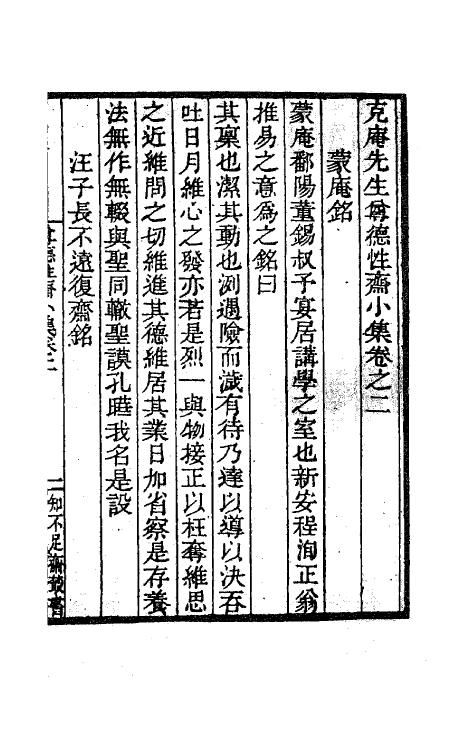 克庵先生尊德性齋小集卷之二
蒙庵銘
蒙庵鄱陽董錫叔予宴居講學之室也新安程洵正翁
推易之意爲之銘曰
其稟也潔其動也洌遇險而濊有待乃達以導以決吞
吐日月維心之發亦若是烈一與物接正以枉奪維思
之近維問之切維進其德維居其業日加省察是存養
法無作無輟與聖同轍聖謨孔曉我名是設
汪子長不遠復齋銘
尊德性齋小集卷二
二知不足齋叢書